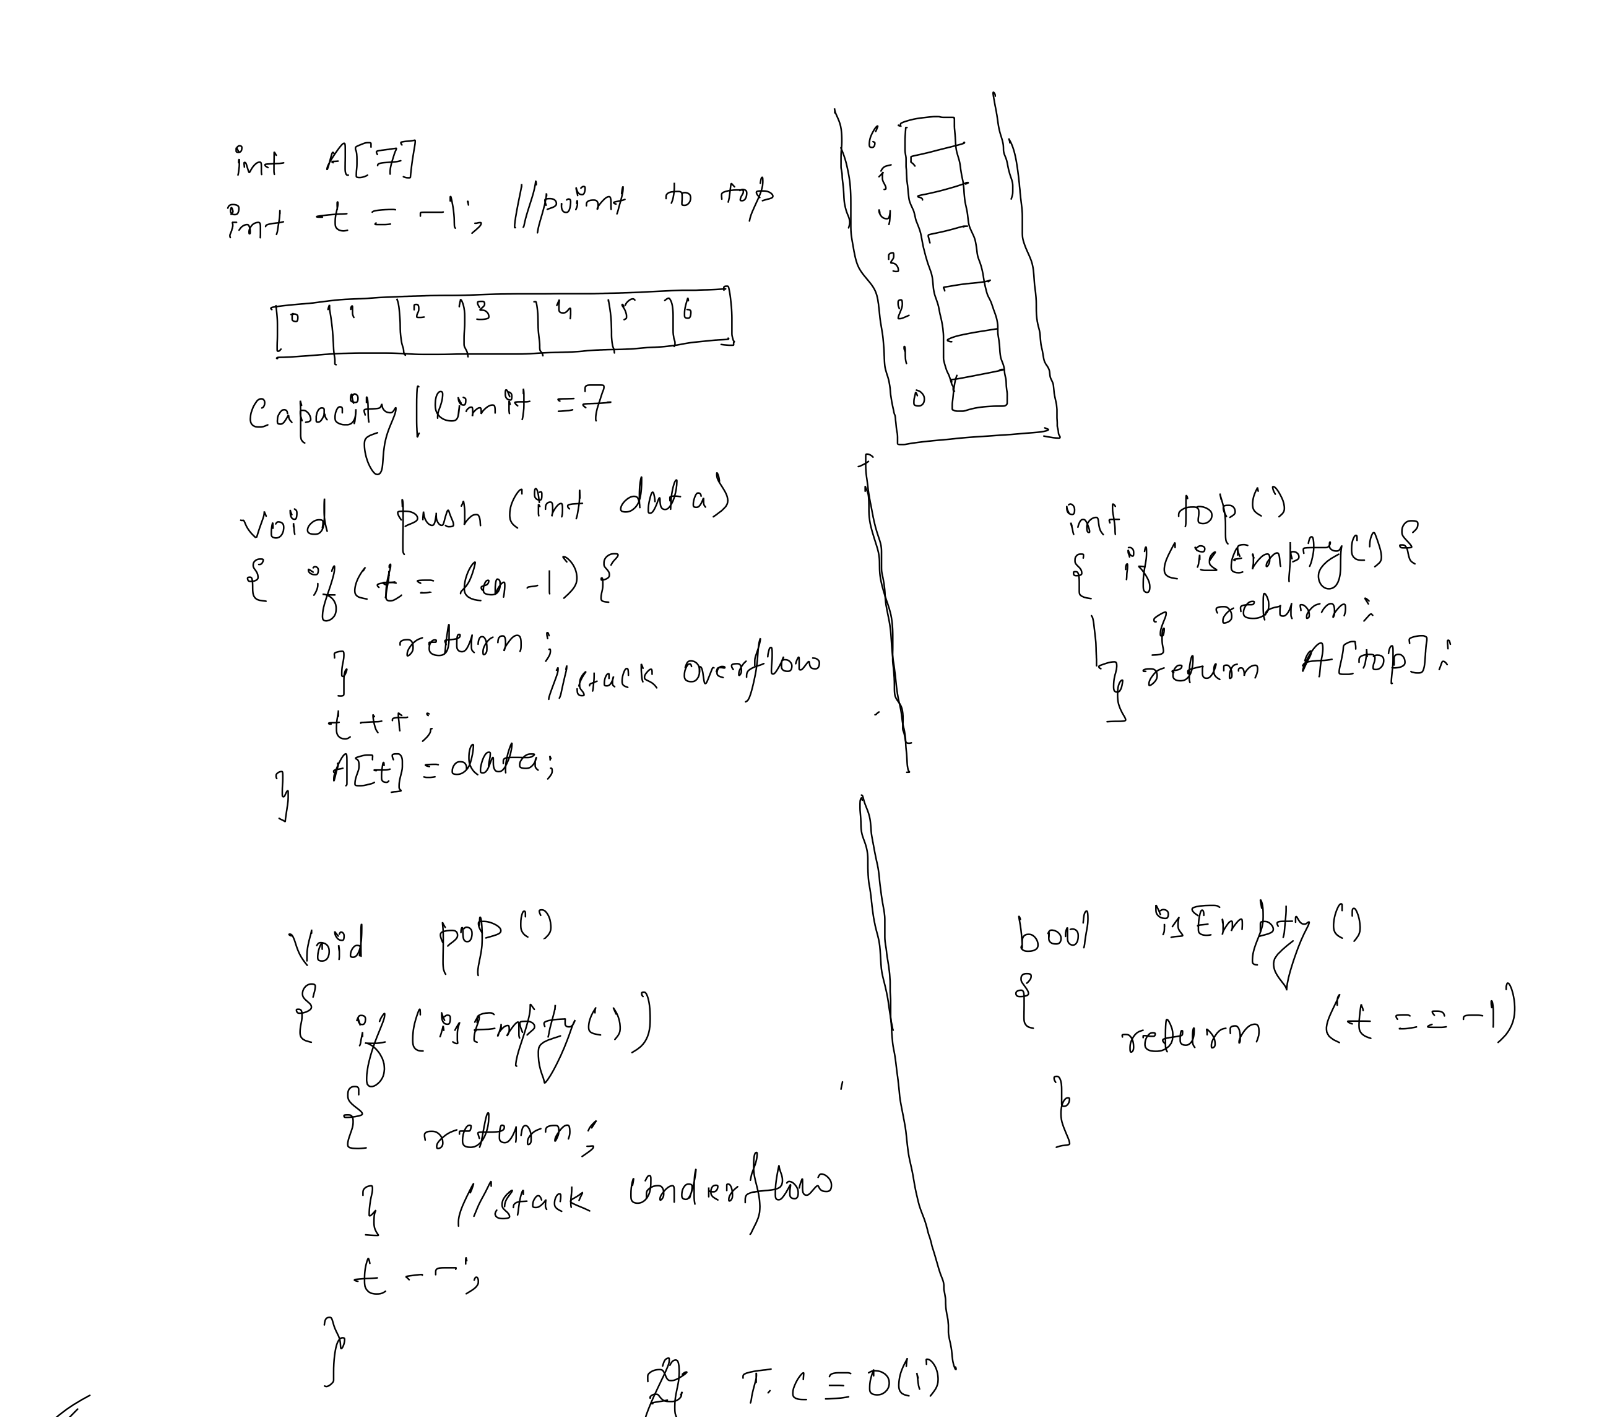 int A[7]
int t = -1; //point to top
0 1 2 3 4 5 6
Capacity | limit = 7
6
5
4
3
2
1
0
void push (int data)
{ if (t = len -1) {
return ;
} //stack overflow
t ++;
A[t] = data;
}
int top ()
{ if ( isEmpty() {
return ;
}
return A[top];
}
Void pop ()
{ if ( isEmpty () )
{ return;
} //stack Underflow
t --;
}
bool isEmpty ()
{
return (t == -1)
}
T. C ≡ O(1)